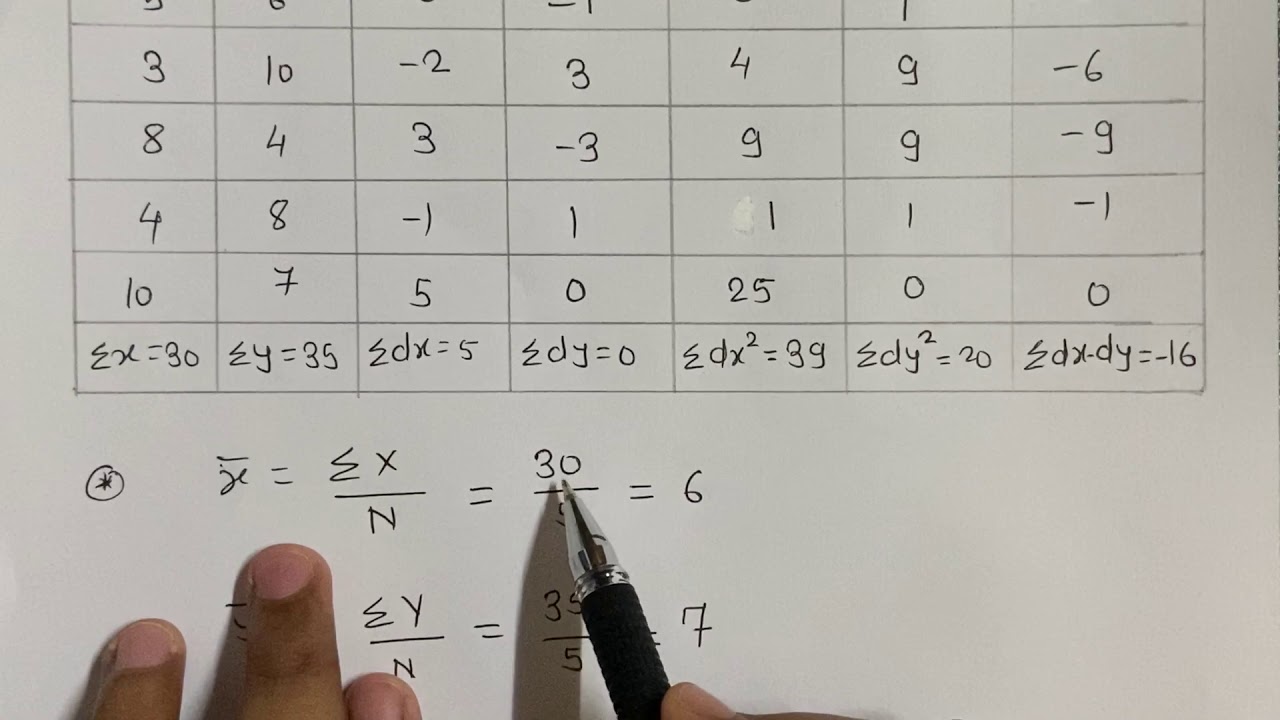 3 10 -2 3 4 9 -6
8 4 3 -3 9 9 -9
4 8 -1 1 1 1 -1
10 7 5 0 25 0 0
Σx=30 Σy=35 Σdx=5 Σdy=0 Σdx²=39 Σdy²=20 Σdx-dy=-16
⊛ x̄ = ΣX/N = 30/5 = 6
ΣY/N = 35/5 = 7